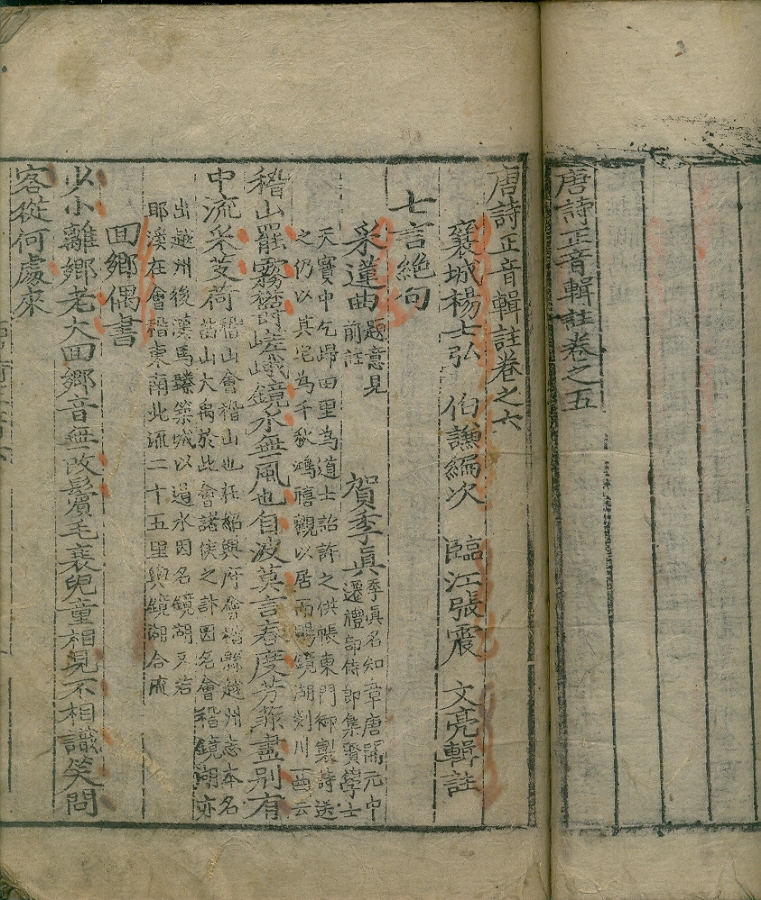 唐詩正音輯註卷之五
唐詩正音輯註卷之六
襄城楊士弘 伯謙編次 臨江張震 文亮輯註
七言絶句
采蓮曲 題意見前註 賀季眞 季眞名知章唐開元中遷禮部侍郎集賢學士
天寶中乞歸田里為道士詔許之供帳東門御製詩送
之仍以其宅為千秋鴻禧觀以居而賜鏡湖剡川一曲云
稽山罷霧鬱嵯峨鏡水無風也自波莫言春度芳菲盡別有
中流采芰荷 稽山會稽山也在紹興府會稽縣越州志本名苗山大禹於此會諸侯之計因名會稽鏡湖亦
出越州後漢馬臻築城以過水因名鏡湖又若
耶溪在會稽東南北流二十五里與鏡湖合
回鄉偶書
少小離鄉老大回鄉音無改鬢毛衰兒童相見不相識笑問
客從何處來